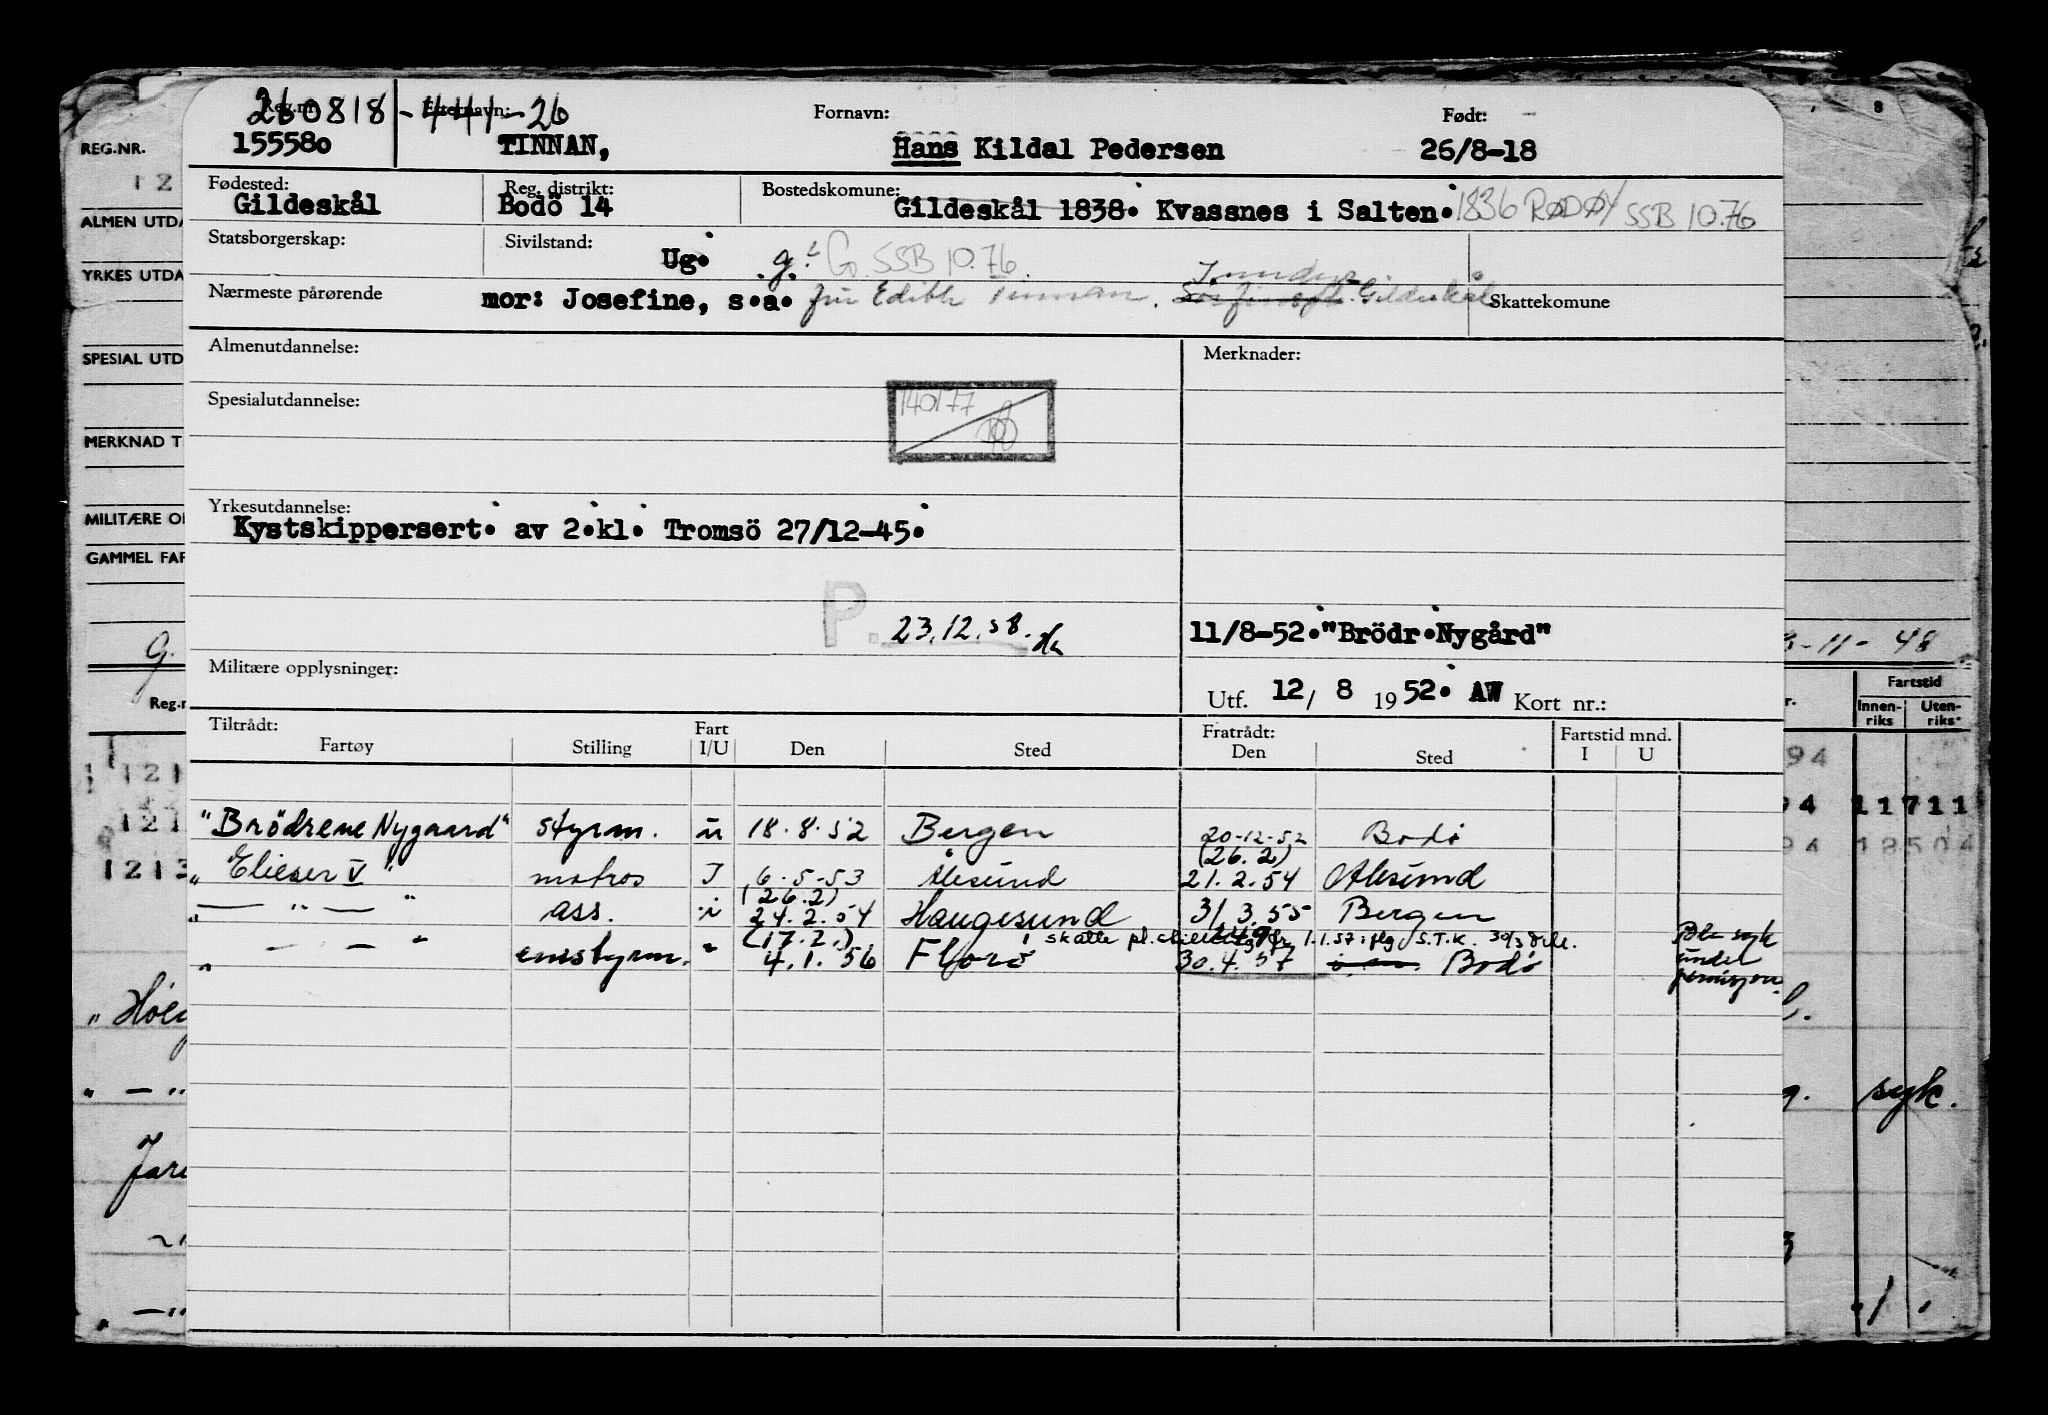 260818-441-26
Reg.nr. Etternavn: Fornavn: Født:
155580 TINNAN, Hans Kildal Pedersen 26/8-18
Fødested: Reg. distrikt: Bostedskomune:
Gildeskål Bodö 14 Gildeskål 1838. Kvassnes i Salten. 1836 RØDØY SSB 10.76
Statsborgerskap: Sivilstand: Ug. g. G. SSB 10.76
Nærmeste pårørende mor: Josefine, s.a. fru Edith Tinnan. Gildeskål Skattekomune
Almenutdannelse: Merknader:
Spesialutdannelse: 140177
Yrkesutdannelse:
Kystskippersert. av 2.kl. Tromsö 27/12-45.
P. 23.12.58. 11/8-52."Brödr.Nygård"
Militære opplysninger: Utf. 12/ 8 1952. AW Kort nr.:
Tiltrådt: Fratrådt: Fartstid mnd.
Fartøy Stilling Fart I/U Den Sted Den Sted I U
"Brödrene Nygaard" styrm. u 18.8.52 Bergen 20-12-52 Bodö
(26.2)
"Elieser V" matros I 6.5.53 Ålesund 21.2.54 Ålesund
(26.2)
" — " — " ass. i 24.2.54 Haugesund 31.3.55 Bergen
(17.2.) skatte 1.1.57 S.T.K. 30/3
" — — " enestyrm. " 4.1.56 Florö 30.4.57 Bodö syk under permisjon.
REG.NR.
12
ALMEN UTDA
YRKES UTDA
SPESIAL UTD
MERKNAD T
MILITÆRE O
GAMMEL FAR
G.
Reg.n
121
121
1213
"Höeg
" — "
Jare
" — "
-11-48
Fartstid
Innenriks Utenriks
94
94 11711
94 18504
syk.